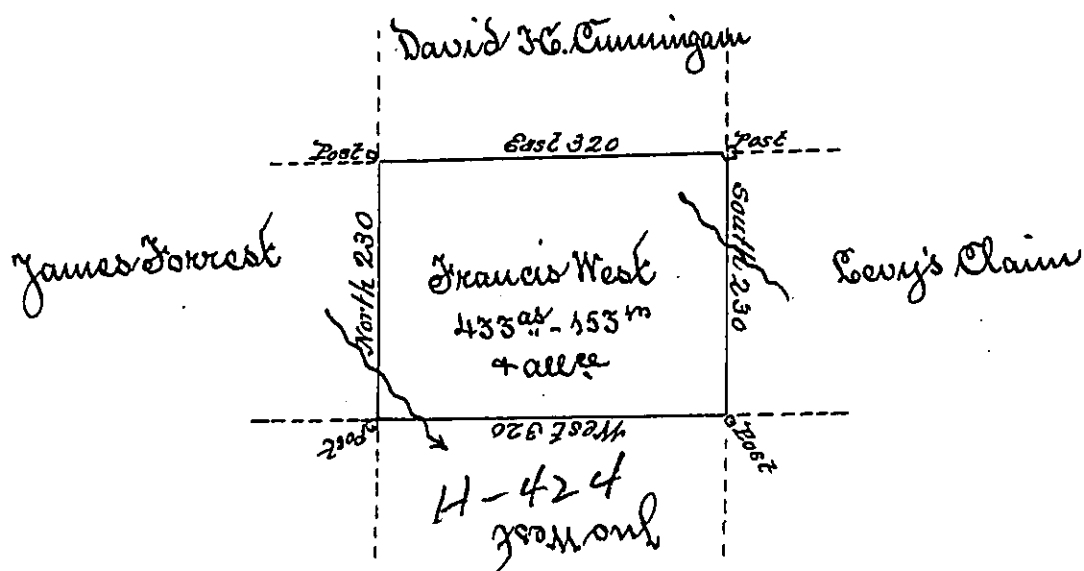 David H. Cunningam
Post
East 320
Post
James Forrest
North 230
Francis West
433 as - 153 m
& all ce
South 230
Levy's Claim
Post
West 320
Post
H-424
Jno West